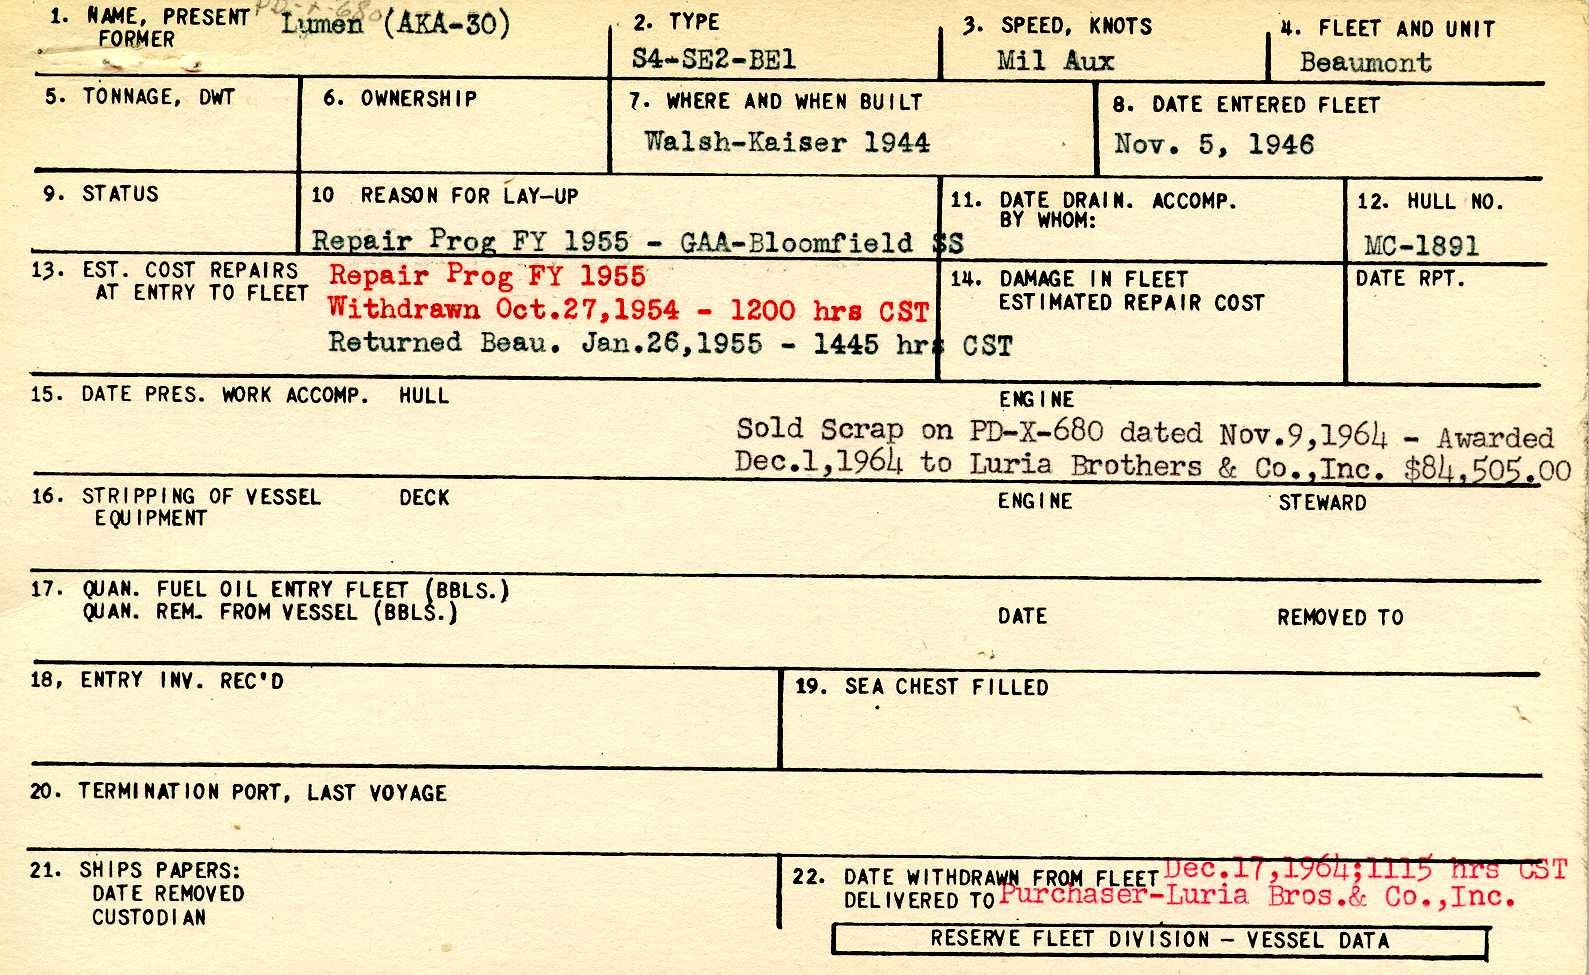 PD-X-680
1. NAME, PRESENT Lumen (AKA-30)
FORMER
2. TYPE
S4-SE2-BE1
3. SPEED, KNOTS
Mil Aux
4. FLEET AND UNIT
Beaumont
5. TONNAGE, DWT
6. OWNERSHIP
7. WHERE AND WHEN BUILT
Walsh-Kaiser 1944
8. DATE ENTERED FLEET
Nov. 5, 1946
9. STATUS
10 REASON FOR LAY-UP
Repair Prog FY 1955 - GAA-Bloomfield SS
11. DATE DRAIN. ACCOMP.
BY WHOM:
12. HULL NO.
MC-1891
13. EST. COST REPAIRS
AT ENTRY TO FLEET
Repair Prog FY 1955
Withdrawn Oct.27,1954 - 1200 hrs CST
Returned Beau. Jan.26,1955 - 1445 hrs CST
14. DAMAGE IN FLEET
ESTIMATED REPAIR COST
DATE RPT.
15. DATE PRES. WORK ACCOMP. HULL ENGINE
Sold Scrap on PD-X-680 dated Nov.9,1964 - Awarded
Dec.1,1964 to Luria Brothers & Co.,Inc. $84,505.00
16. STRIPPING OF VESSEL DECK ENGINE STEWARD
EQUIPMENT
17. QUAN. FUEL OIL ENTRY FLEET (BBLS.)
QUAN. REM. FROM VESSEL (BBLS.) DATE REMOVED TO
18, ENTRY INV. REC'D
19. SEA CHEST FILLED
20. TERMINATION PORT, LAST VOYAGE
21. SHIPS PAPERS:
DATE REMOVED
CUSTODIAN
22. DATE WITHDRAWN FROM FLEET Dec.17,1964;1115 hrs CST
DELIVERED TO Purchaser-Luria Bros.& Co.,Inc.
RESERVE FLEET DIVISION - VESSEL DATA